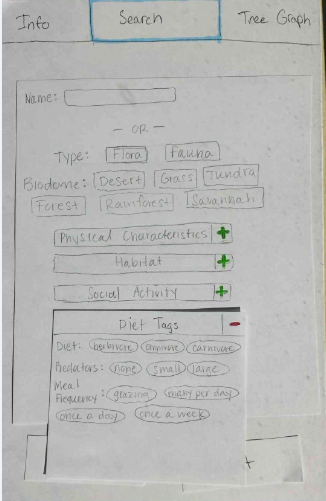 Info Search Tree Graph
Name:
— OR —
Type: Flora Fauna
Biodome: Desert Grass Tundra
Forest Rainforest Savannah
Physical Characteristics +
Habitat +
Social Activity +
Diet Tags -
Diet: herbivore omnivore carnivore
Predators: none small large
Meal
Frequency: grazing many per day
once a day once a week